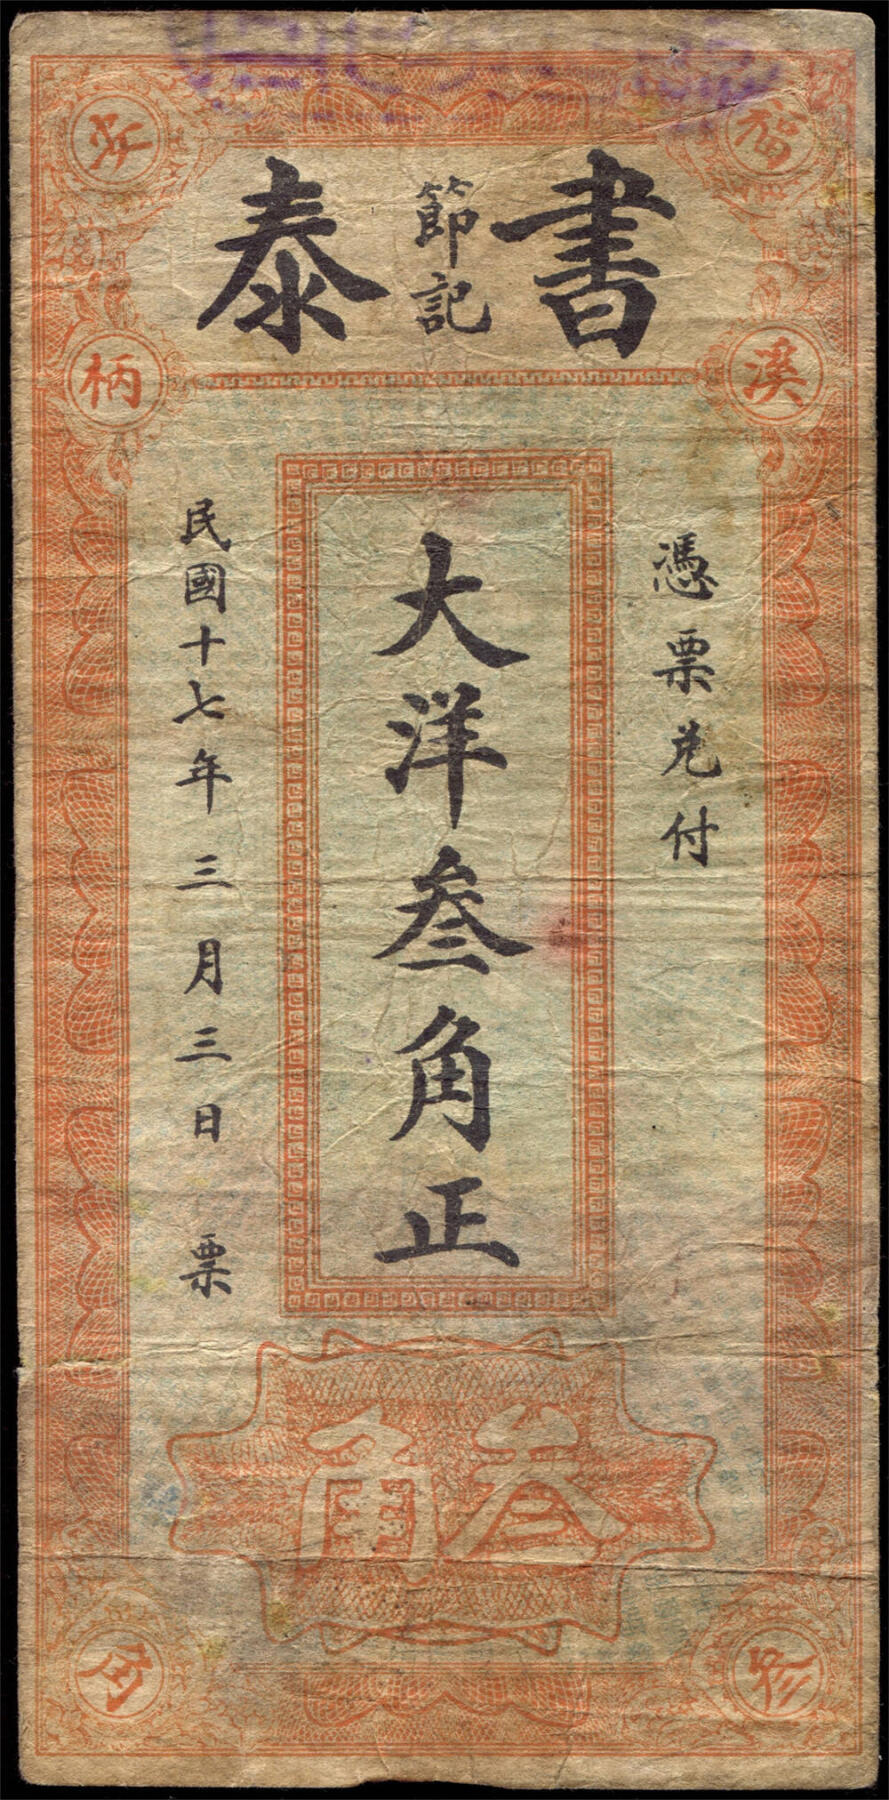 福 安
書 節記 泰
溪 柄
憑票兌付
大洋叁角正
民國十七年三月三日 票
叁角
参 角